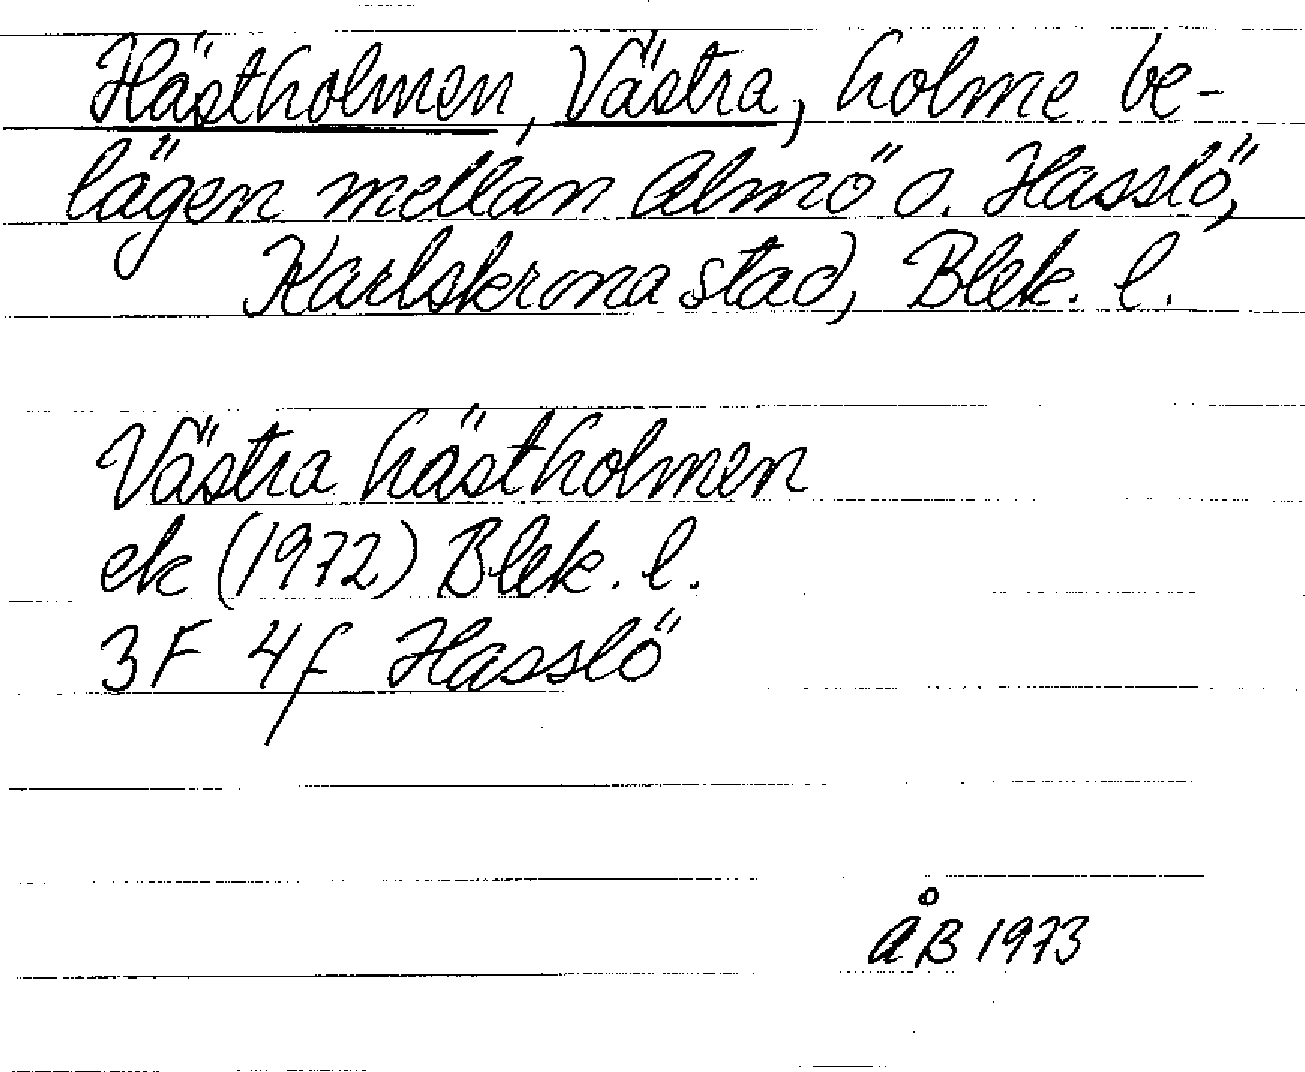 Hästholmen, Västra, holme be-
lägen mellan Almö o. Hasslö,
Karlskrona stad, Blek. l.
Västra hästholmen
ek (1972) Blek. l.
3F 4f Hasslö
ÅB 1973